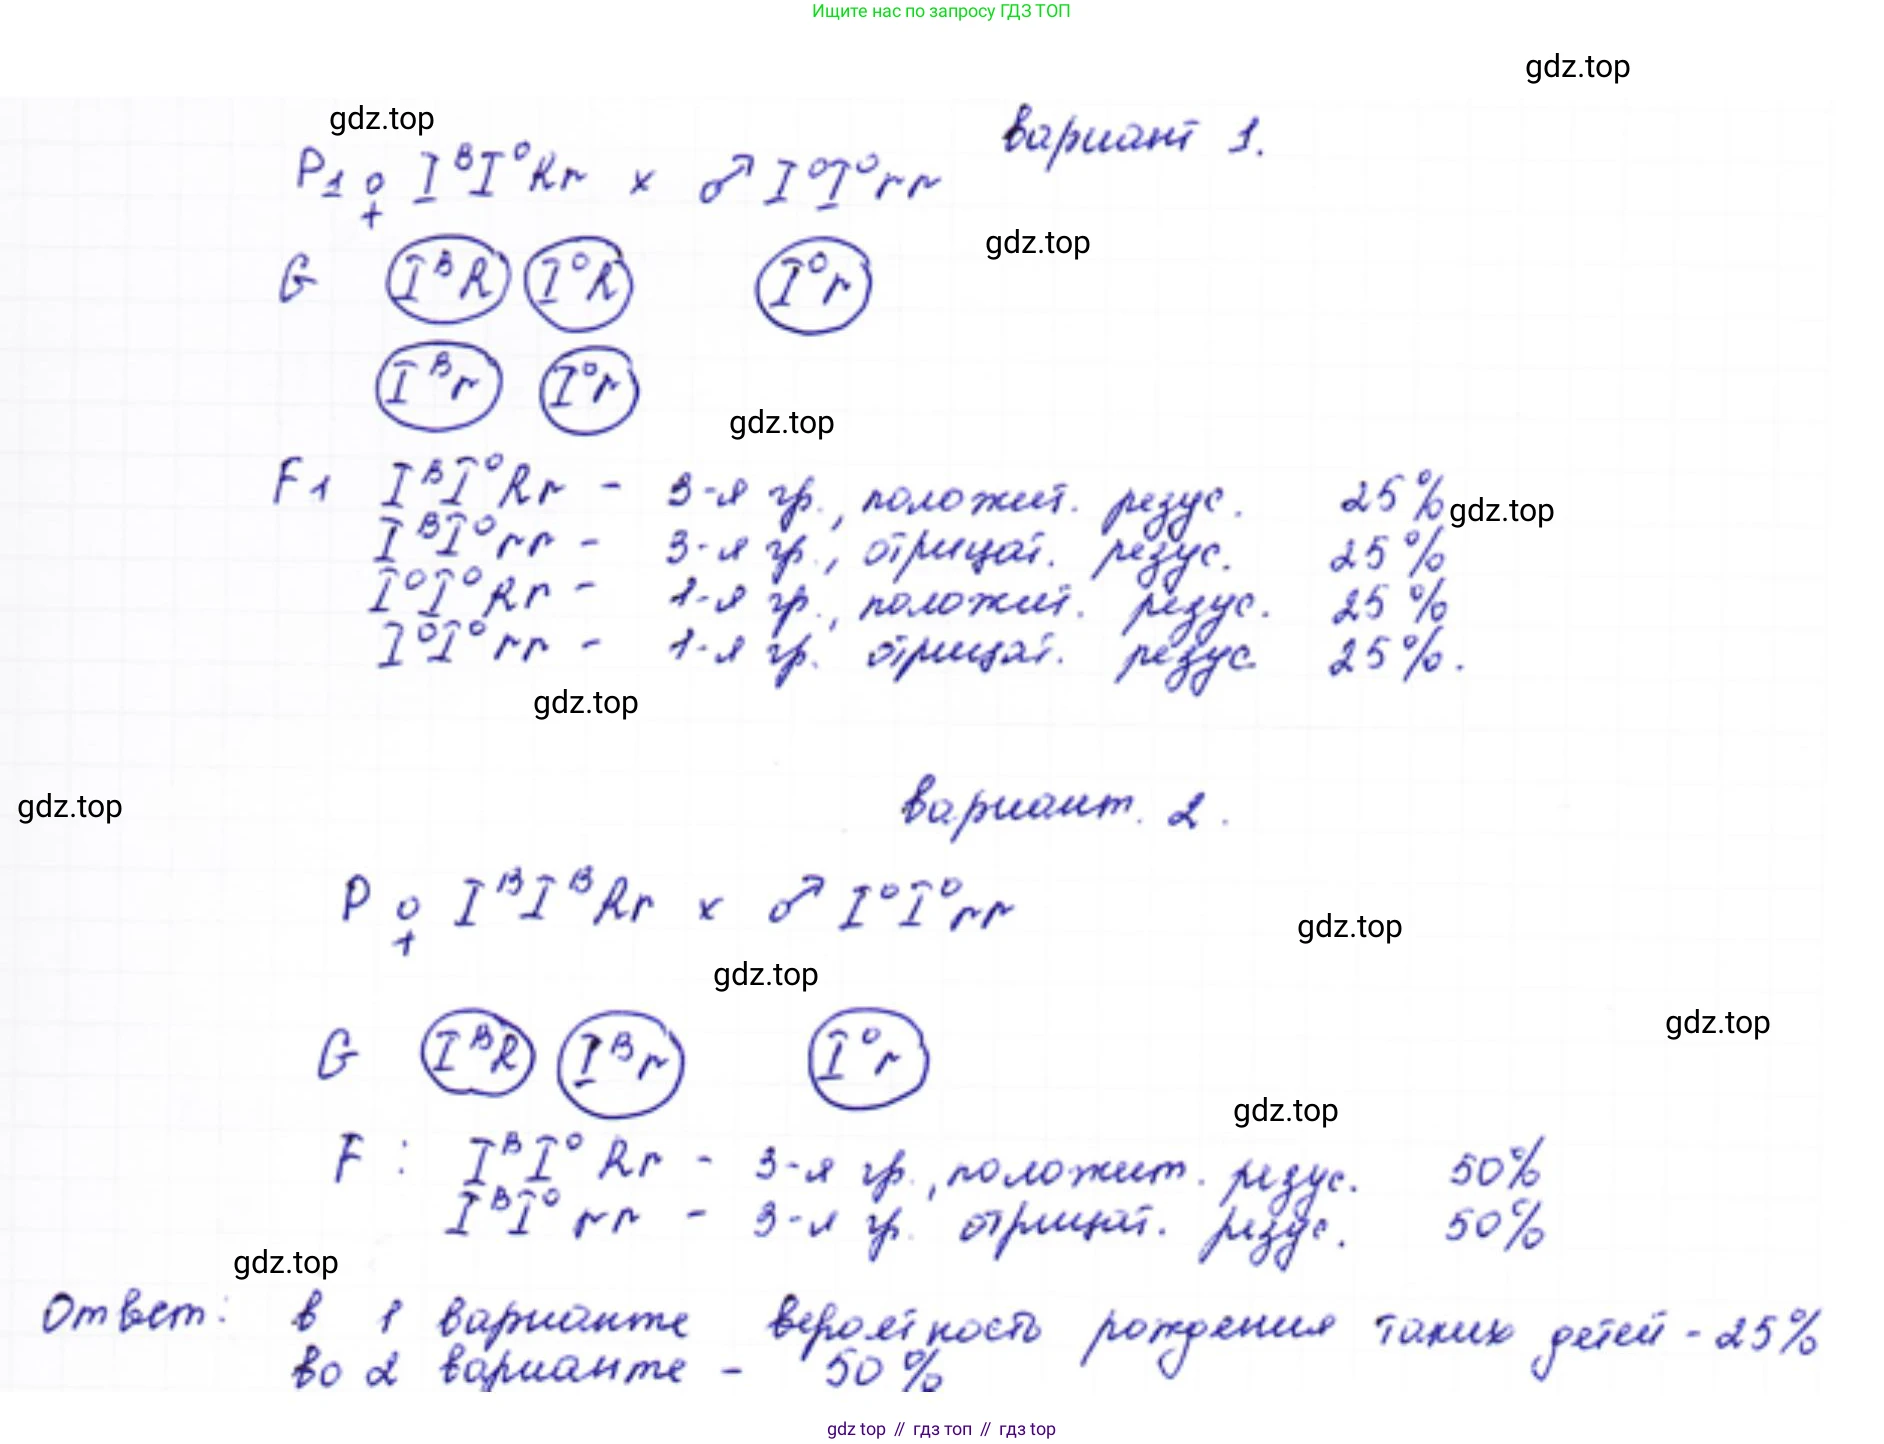 Ищите нас по запросу ГДЗ ТОП
gdz.top
gdz.top
вариант 1.
P1 ♀ IᴮI⁰Rr x ♂ I⁰I⁰rr
gdz.top
G IᴮR I⁰R I⁰r
Iᴮr I⁰r
gdz.top
F1 IᴮI⁰Rr - 3-я гр., положит. резус. 25%
gdz.top
IᴮI⁰rr - 3-я гр., отрицат. резус. 25%
I⁰I⁰Rr - 1-я гр., положит. резус. 25%
I⁰I⁰rr - 1-я гр. отрицат. резус 25%.
gdz.top
gdz.top
вариант. 2.
P ♀ IᴮIᴮRr x ♂ I⁰I⁰rr
gdz.top
gdz.top
gdz.top
G IᴮR Iᴮr I⁰r
gdz.top
F: IᴮI⁰Rr - 3-я гр., положит. резус. 50%
IᴮI⁰rr - 3-я гр. отрицат. резус. 50%
gdz.top
Ответ: в 1 варианте вероятность рождения таких детей - 25%
во 2 варианте - 50%
gdz top // гдз топ // гдз top